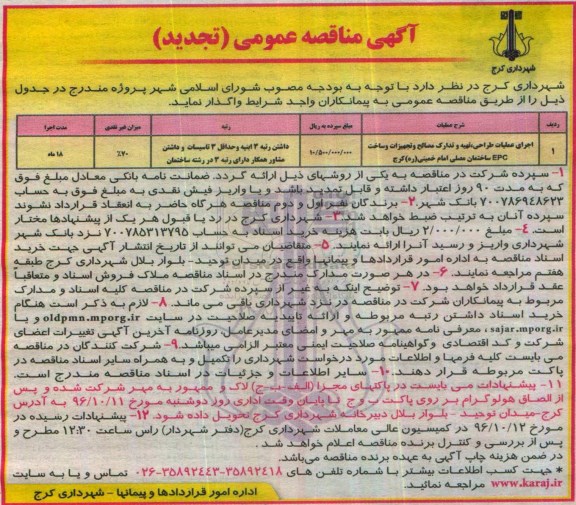 آگهی مناقصه عمومی (تجدید)
شهرداری کرج
شهرداری کرج در نظر دارد با توجه به بودجه مصوب شورای اسلامی شهر پروژه مندرج در جدول
ذیل را از طریق مناقصه عمومی به پیمانکاران واجد شرایط واگذار نماید.
ردیف شرح عملیات مبلغ سپرده به ریال رتبه میزان غیر نقدی مدت اجرا
۱ اجرای عملیات طراحی،تهیه و تدارک مصالح وتجهیزات وساخت EPC ساختمان مصلی امام خمینی(ره)کرج ۱۰/۵۰۰/۰۰۰/۰۰۰ داشتن رتبه ۳ ابنیه وحداقل ۳ تاسیسات و داشتن مشاور همکار دارای رتبه ۳ در رشته ساختمان ۷۰٪ ۱۸ ماه
۱- سپرده شرکت در مناقصه به یکی از روشهای ذیل ارائه گردد. ضمانت نامه بانکی معادل مبلغ فوق
که به مدت ۹۰ روز اعتبار داشته و قابل تمدید باشد و یا واریز فیش نقدی به مبلغ فوق به حساب
۷۰۰۷۸۶۹۴۸۶۲۳ بانک شهر.۲- برندگان نفر اول و دوم مناقصه هرگاه حاضر به انعقاد قرارداد نشوند
سپرده آنان به ترتیب ضبط خواهد شد. ۳- شهرداری کرج در رد یا قبول هر یک از پیشنهادها مختار
است. ۴- مبلغ ۲/۰۰۰/۰۰۰ ریال بابت هزینه خرید اسناد به حساب ۷۰۰۷۸۵۳۱۳۷۹۵ نزد بانک شهر
شهرداری واریز و رسید آنرا ارائه نمایند. ۵- متقاضیان می توانند از تاریخ انتشار آگهی جهت خرید
اسناد مناقصه به اداره امور قراردادها و پیمانها واقع در میدان توحید – بلوار بلال شهرداری کرج طبقه
هفتم مراجعه نمایند. ۶- در هر صورت مدارک مندرج در اسناد مناقصه ملاک فروش اسناد و متعاقبا
عقد قرارداد خواهد بود. ۷- توضیح اینکه به غیر از سپرده شرکت در مناقصه کلیه اسناد و مدارک
مربوط به پیمانکاران شرکت در مناقصه در نزد شهرداری باقی می ماند. ۸- لازم به ذکر است هنگام
خرید اسناد داشتن رتبه مربوطه و ارائه تاییدیه صلاحیت در سایت oldpmn.mporg.ir و یا
sajar.mporg.ir ، معرفی نامه ممهور به مهر و امضای مدیرعامل، روزنامه آخرین آگهی تغییرات اعضای
شرکت و کد اقتصادی وگواهینامه صلاحیت ایمنی معتبر الزامی میباشد.۹- شرکت کنندگان در مناقصه
می بایست کلیه فرمها و اطلاعات مورد درخواست شهرداری را تکمیل و به همراه سایر اسناد مناقصه در
پاکت مربوطه قرار دهند.۱۰- سایر اطلاعات و جزئیات در اسناد مناقصه مندرج است.
۱۱- پیشنهادات می بایست در پاکتهای مجزا (الف-ب-ج) لاک و ممهور به مهر شرکت شده و پس
از الصاق هولوگرام بر روی پاکت ج تا پایان وقت اداری روز دوشنبه مورخ ۹۶/۱۰/۱۱ به آدرس
کرج-میدان توحید - بلوار بلال دبیرخانه شهرداری کرج تحویل داده شود. ۱۲- پیشنهادات رسیده در
مورخ ۹۶/۱۰/۱۲ در کمیسیون عالی معاملات شهرداری کرج(دفتر شهردار) راس ساعت ۱۲:۳۰ مطرح و
پس از بررسی و کنترل برنده مناقصه اعلام خواهد شد.
در ضمن هزینه چاپ آگهی به عهده برنده مناقصه می‌باشد.
* جهت کسب اطلاعات بیشتر با شماره تلفن های ۳۵۸۹۲۴۱۸-۳۵۸۹۲۴۴۳-۰۲۶ تماس و یا به سایت
www.karaj.ir مراجعه نمائید.
اداره امور قراردادها و پیمانها – شهرداری کرج